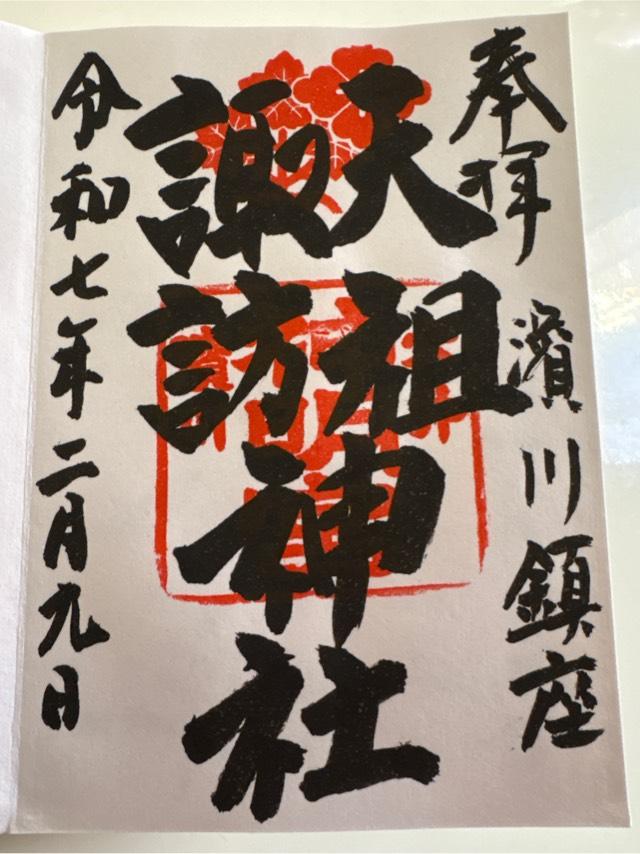 奉拝
濱川鎮座
天祖
諏訪
神社
令和七年二月九日